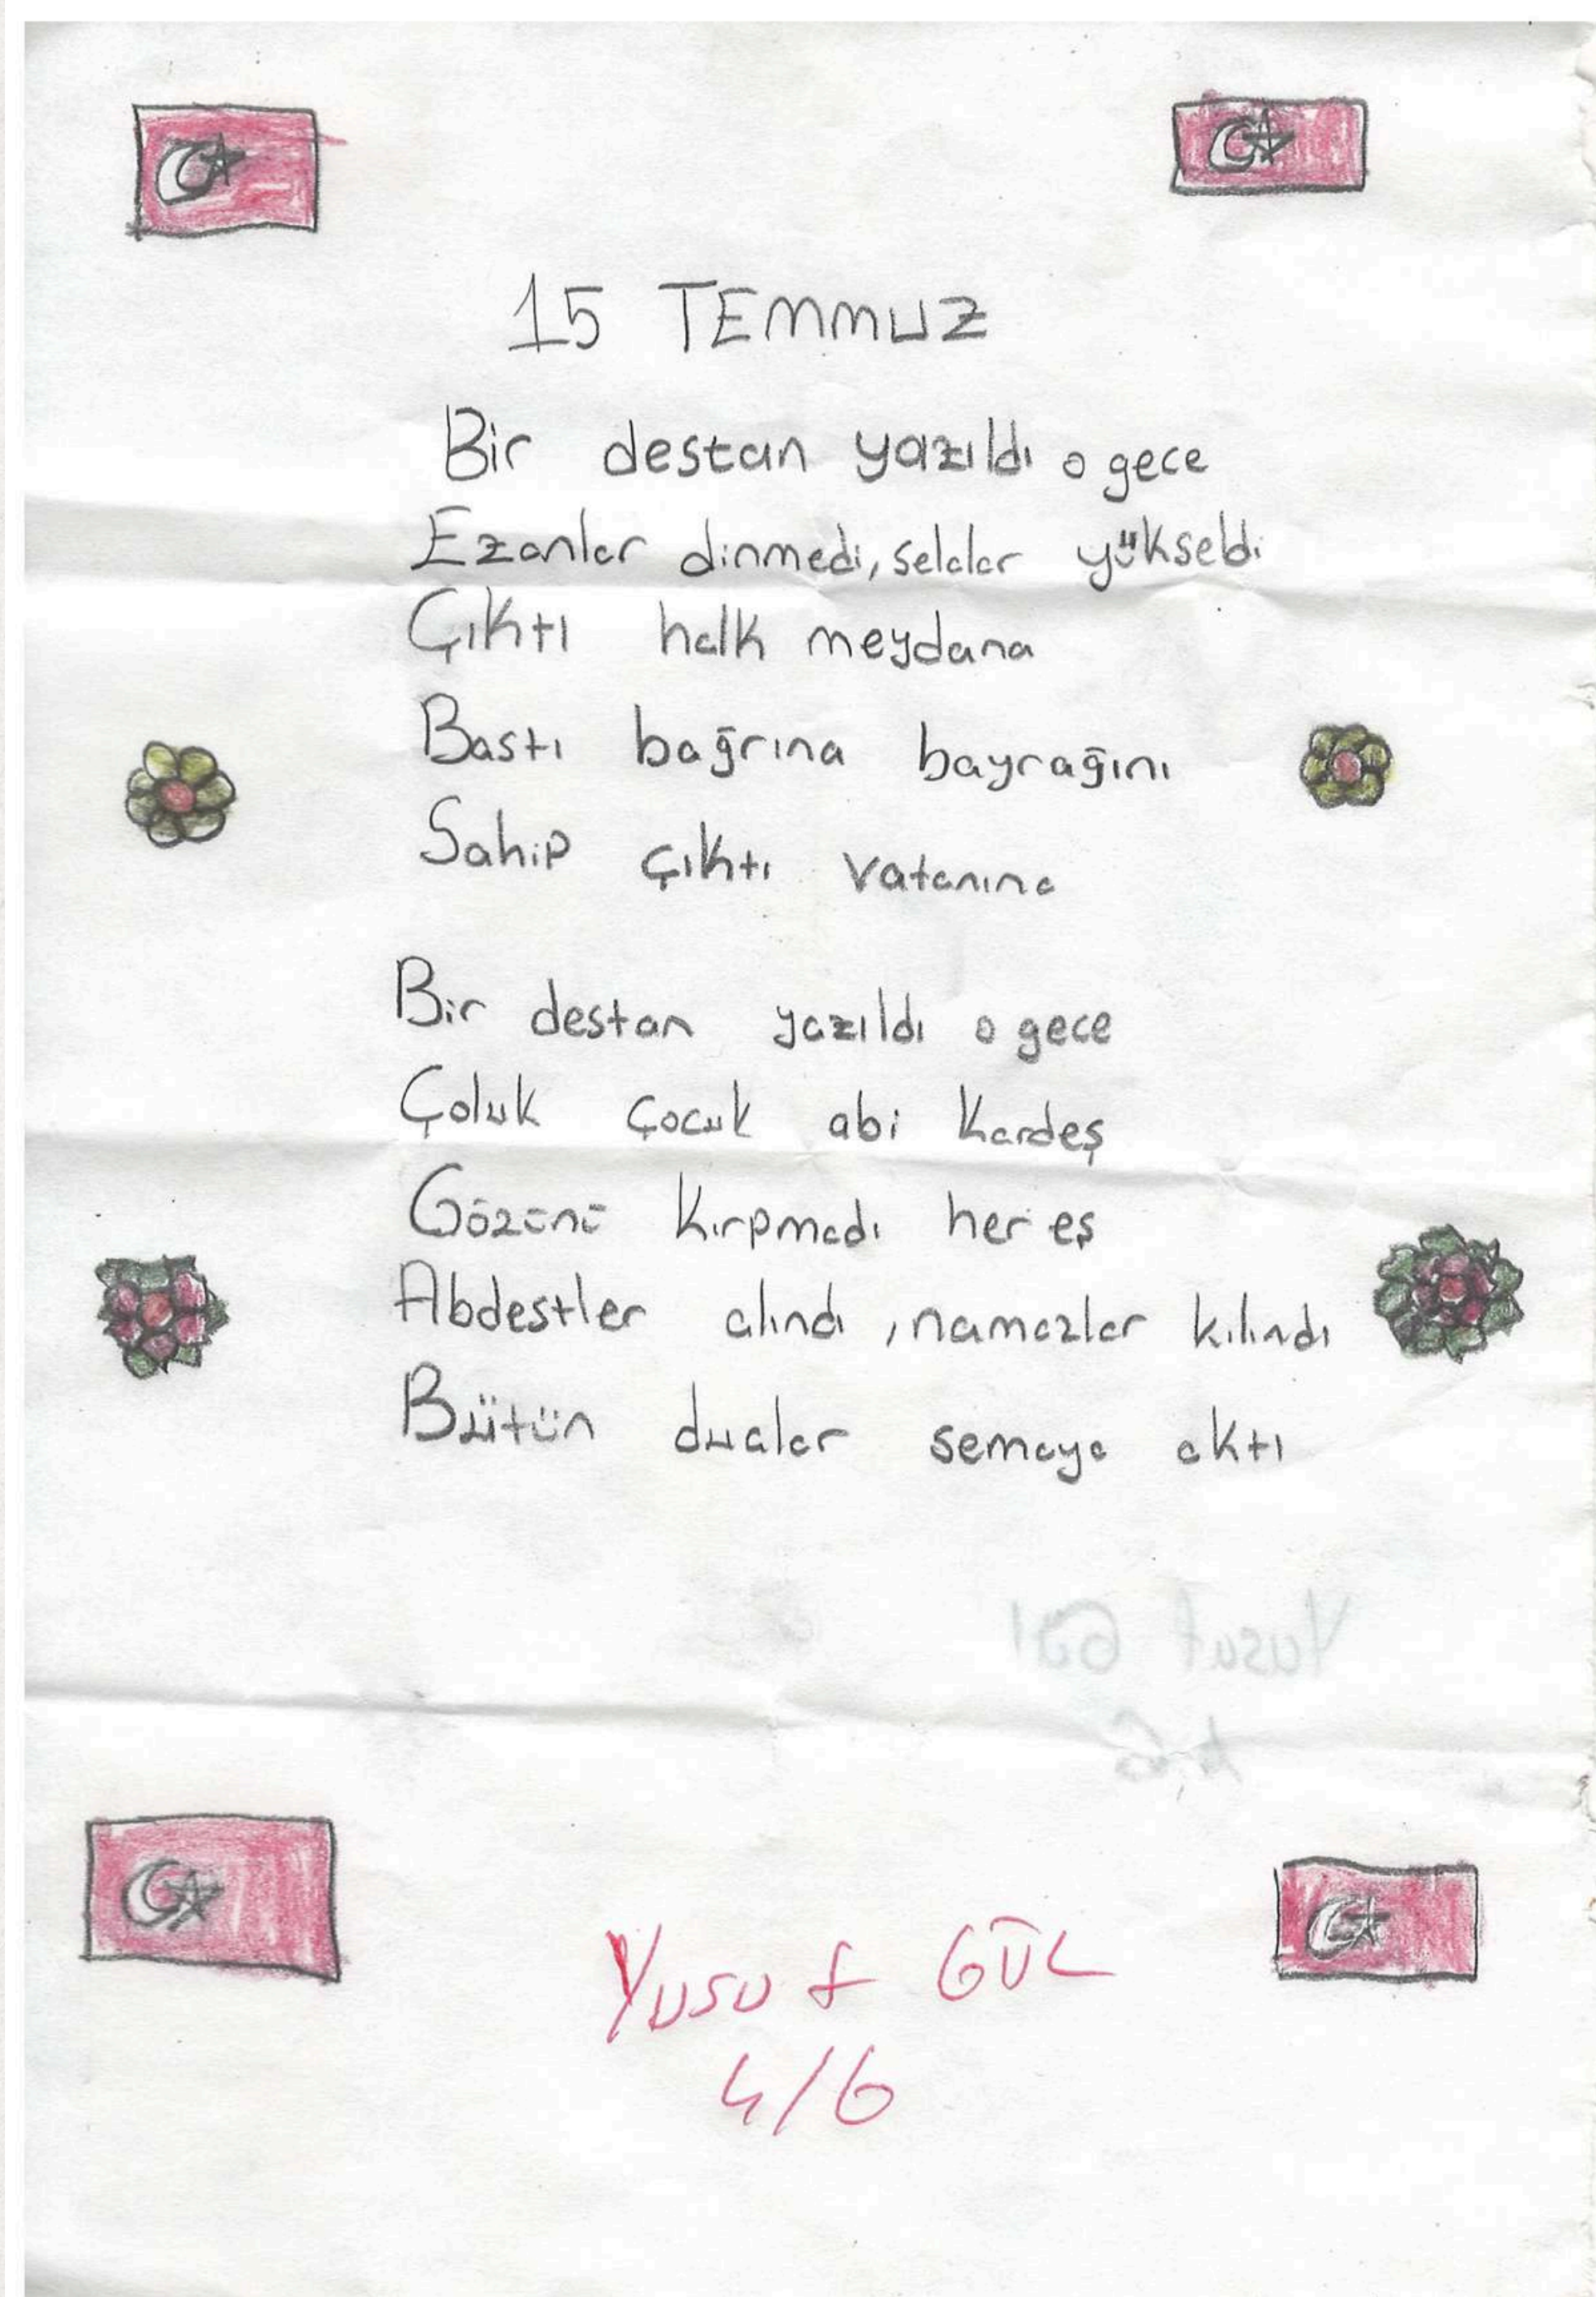 15 TEMMUZ
Bir destan yazıldı o gece
Ezanlar dinmedi, selalar yükseldi
Çıktı halk meydana
Bastı bağrına bayrağını
Sahip çıktı vatanına
Bir destan yazıldı o gece
Çoluk çocuk abi kardeş
Gözünü kırpmadı her eş
Abdestler alındı, namazlar kılındı
Bütün dualar semaya aktı
Yusuf Gül
Yusuf GÜL
4/G